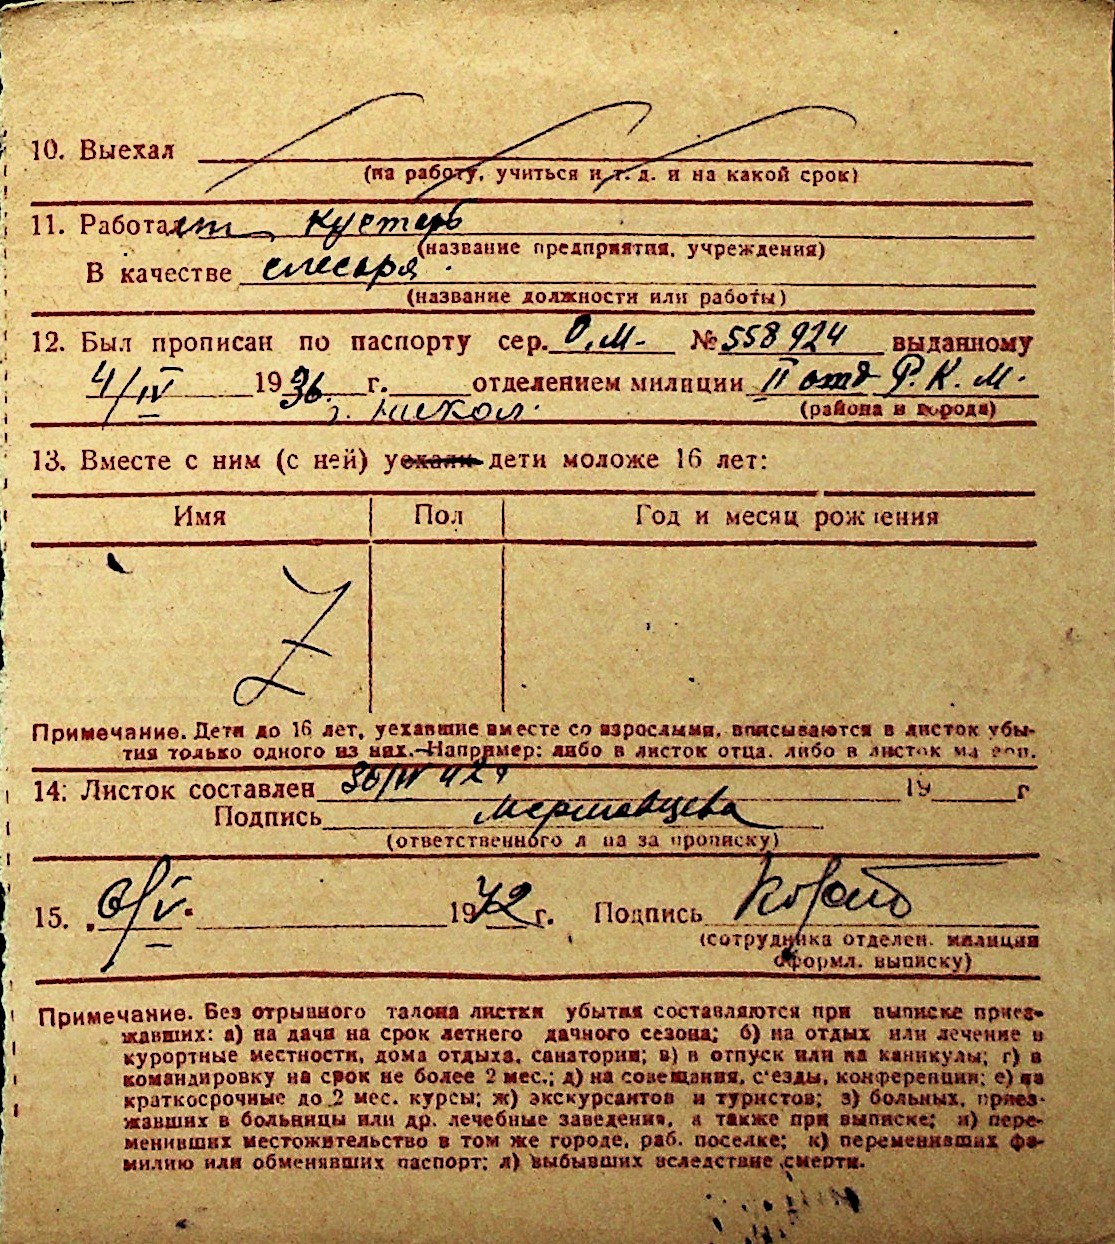 10. Выехал
(на работу, учиться и т. д. и на какой срок)
11. Работа
(название предприятия, учреждения)
В качестве слесаря
(название должности или работы)
12. Был прописан по паспорту сер. О.М. № 558924 выданному
4/IV 1936 г. отделением милиции II отд Р. К. М.
(района и города)
13. Вместе с ним (с ней) уехали дети моложе 16 лет:
Имя Пол Год и месяц рождения
Z
Примечание. Дети до 16 лет, уехавшие вместе со взрослыми, вписываются в листок убы-
тия только одного из них.—Например: либо в листок отца, либо в листок
14. Листок составлен 42 19 г
Подпись
(ответственного лица за прописку)
15. 6/V. 1942 г. Подпись
(сотрудника отделен. милиции
оформл. выписку)
Примечание. Без отрывного талона листки убытия составляются при выписке приез-
жавших: а) на дачи на срок летнего дачного сезона; б) на отдых или лечение в
курортные местности, дома отдыха, санатории; в) в отпуск или на каникулы; г) в
командировку на срок не более 2 мес.; д) на совещания, с'езды, конференции; е) на
краткосрочные до 2 мес. курсы; ж) экскурсантов и туристов; з) больных, приез-
жавших в больницы или др. лечебные заведения, а также при выписке; и) пере-
менивших местожительство в том же городе, раб. поселке; к) переменивших фа-
милию или обменявших паспорт; л) выбывших вследствие смерти.